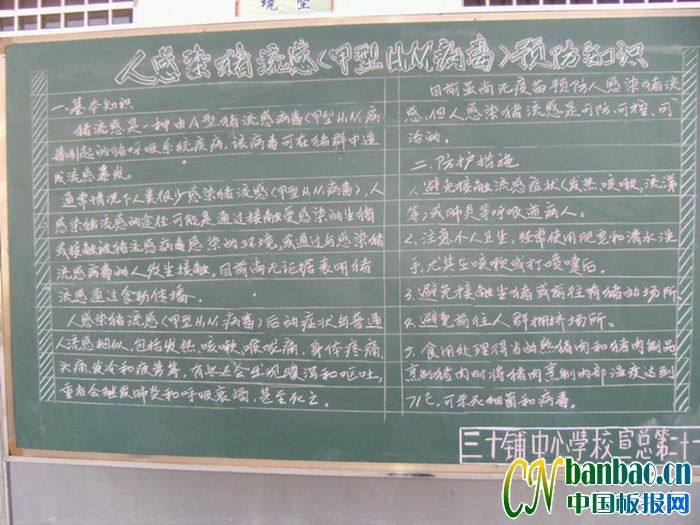 境 堂
人感染猪流感(甲型H1N1病毒)预防知识
一.基本知识
猪流感是一种由A型猪流感病毒(甲型H1N1病
毒)引起的猪呼吸系统疾病,该病毒可在猪群中造
成流感暴发。
通常情况下人类很少感染猪流感(甲型H1N1病毒),人
感染猪流感的途径可能是通过接触受感染的生猪
或接触被猪流感病毒感染的环境,或通过与感染猪
流感病毒的人发生接触,目前尚无证据表明猪
流感通过食物传播。
人感染猪流感(甲型H1N1病毒)后的症状与普通
人流感相似,包括发热、咳嗽、喉咙痛、身体疼痛、
头痛、发冷和疲劳等,有些还会出现腹泻和呕吐,
重者会继发肺炎和呼吸衰竭,甚至死亡。
目前虽尚无疫苗预防人感染猪流
感,但人感染猪流感是可防、可控、可
治的。
二.防护措施
1.避免接触流感症状(发热、咳嗽、流涕
等)或肺炎等呼吸道病人。
2.注意个人卫生,经常使用肥皂和清水洗
手,尤其在咳嗽或打喷嚏后。
3.避免接触生猪或前往有猪的场所。
4.避免前往人群拥挤场所。
5.食用处理得当的熟猪肉和猪肉制品
烹制猪肉时将猪肉烹制内部温度达到
71℃,可杀死细菌和病毒。
三十铺中小学校宣总第二十
CN banbao.cn
中国板报网